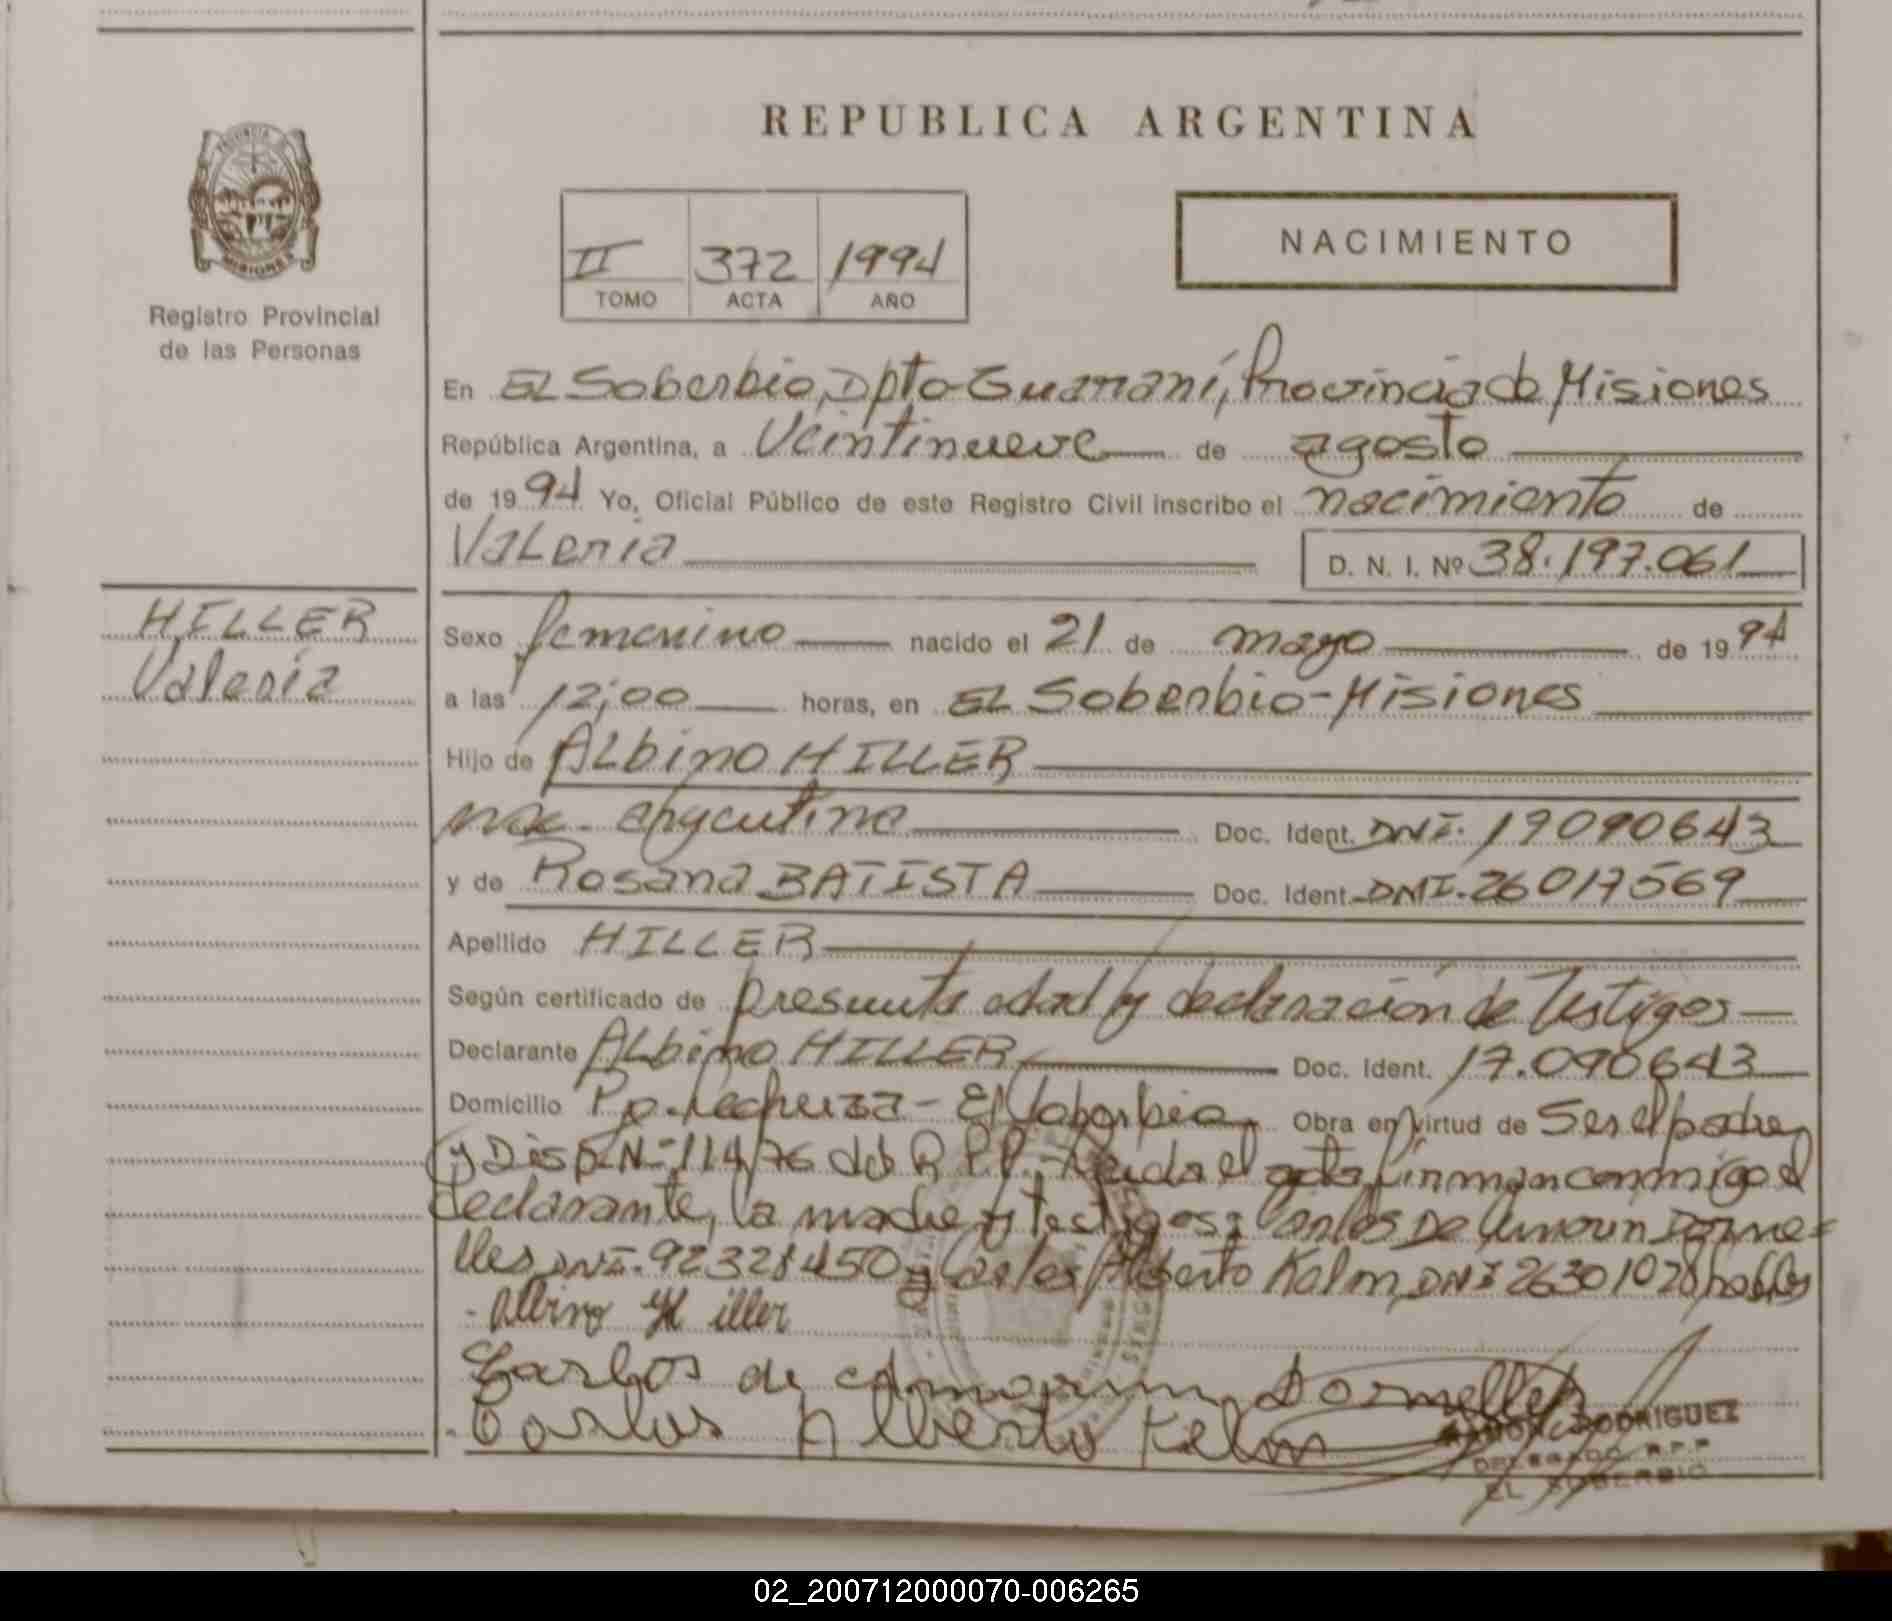 REPUBLICA ARGENTINA
PROVINCIA DE
MISIONES
Registro Provincial
de las Personas
II 372 1994
TOMO ACTA AÑO
NACIMIENTO
En EL Soberbio, Dpto Guaraní, Provincia de Misiones
República Argentina, a Veintinueve de agosto
de 1994 Yo, Oficial Público de este Registro Civil inscribo el nacimiento de
Valeria D. N. I. Nº 38.197.061
HILLER
Valeria
Sexo femenino nacido el 21 de mayo de 1994
a las 12;00 horas, en EL Soberbio-Misiones
Hijo de Albino HILLER
nac. argentina Doc. Ident. DNI. 17090643
y de Rosana BATISTA Doc. Ident. DNI. 26017569
Apellido HILLER
Según certificado de presunta edad y declaración de Testigos
Declarante Albino HILLER Doc. Ident. 17.090643
Domicilio El Soberbio Obra en virtud de Ser el padre
y Disp. Nº 114/76 del R.P.P. Leída el acta firman conmigo el
declarante, la madre y testigos: Carlos De Amorin Dorne=
lles DNI. 92328450 y Carlos Alberto Kelm, DNI 26301028
Albino Hiller
Carlos de Amorim Dornelles
Carlos Alberto Kelm
RAMON RODRIGUEZ
DELEGADO R.P.P.
EL SOBERBIO
02_200712000070-006265